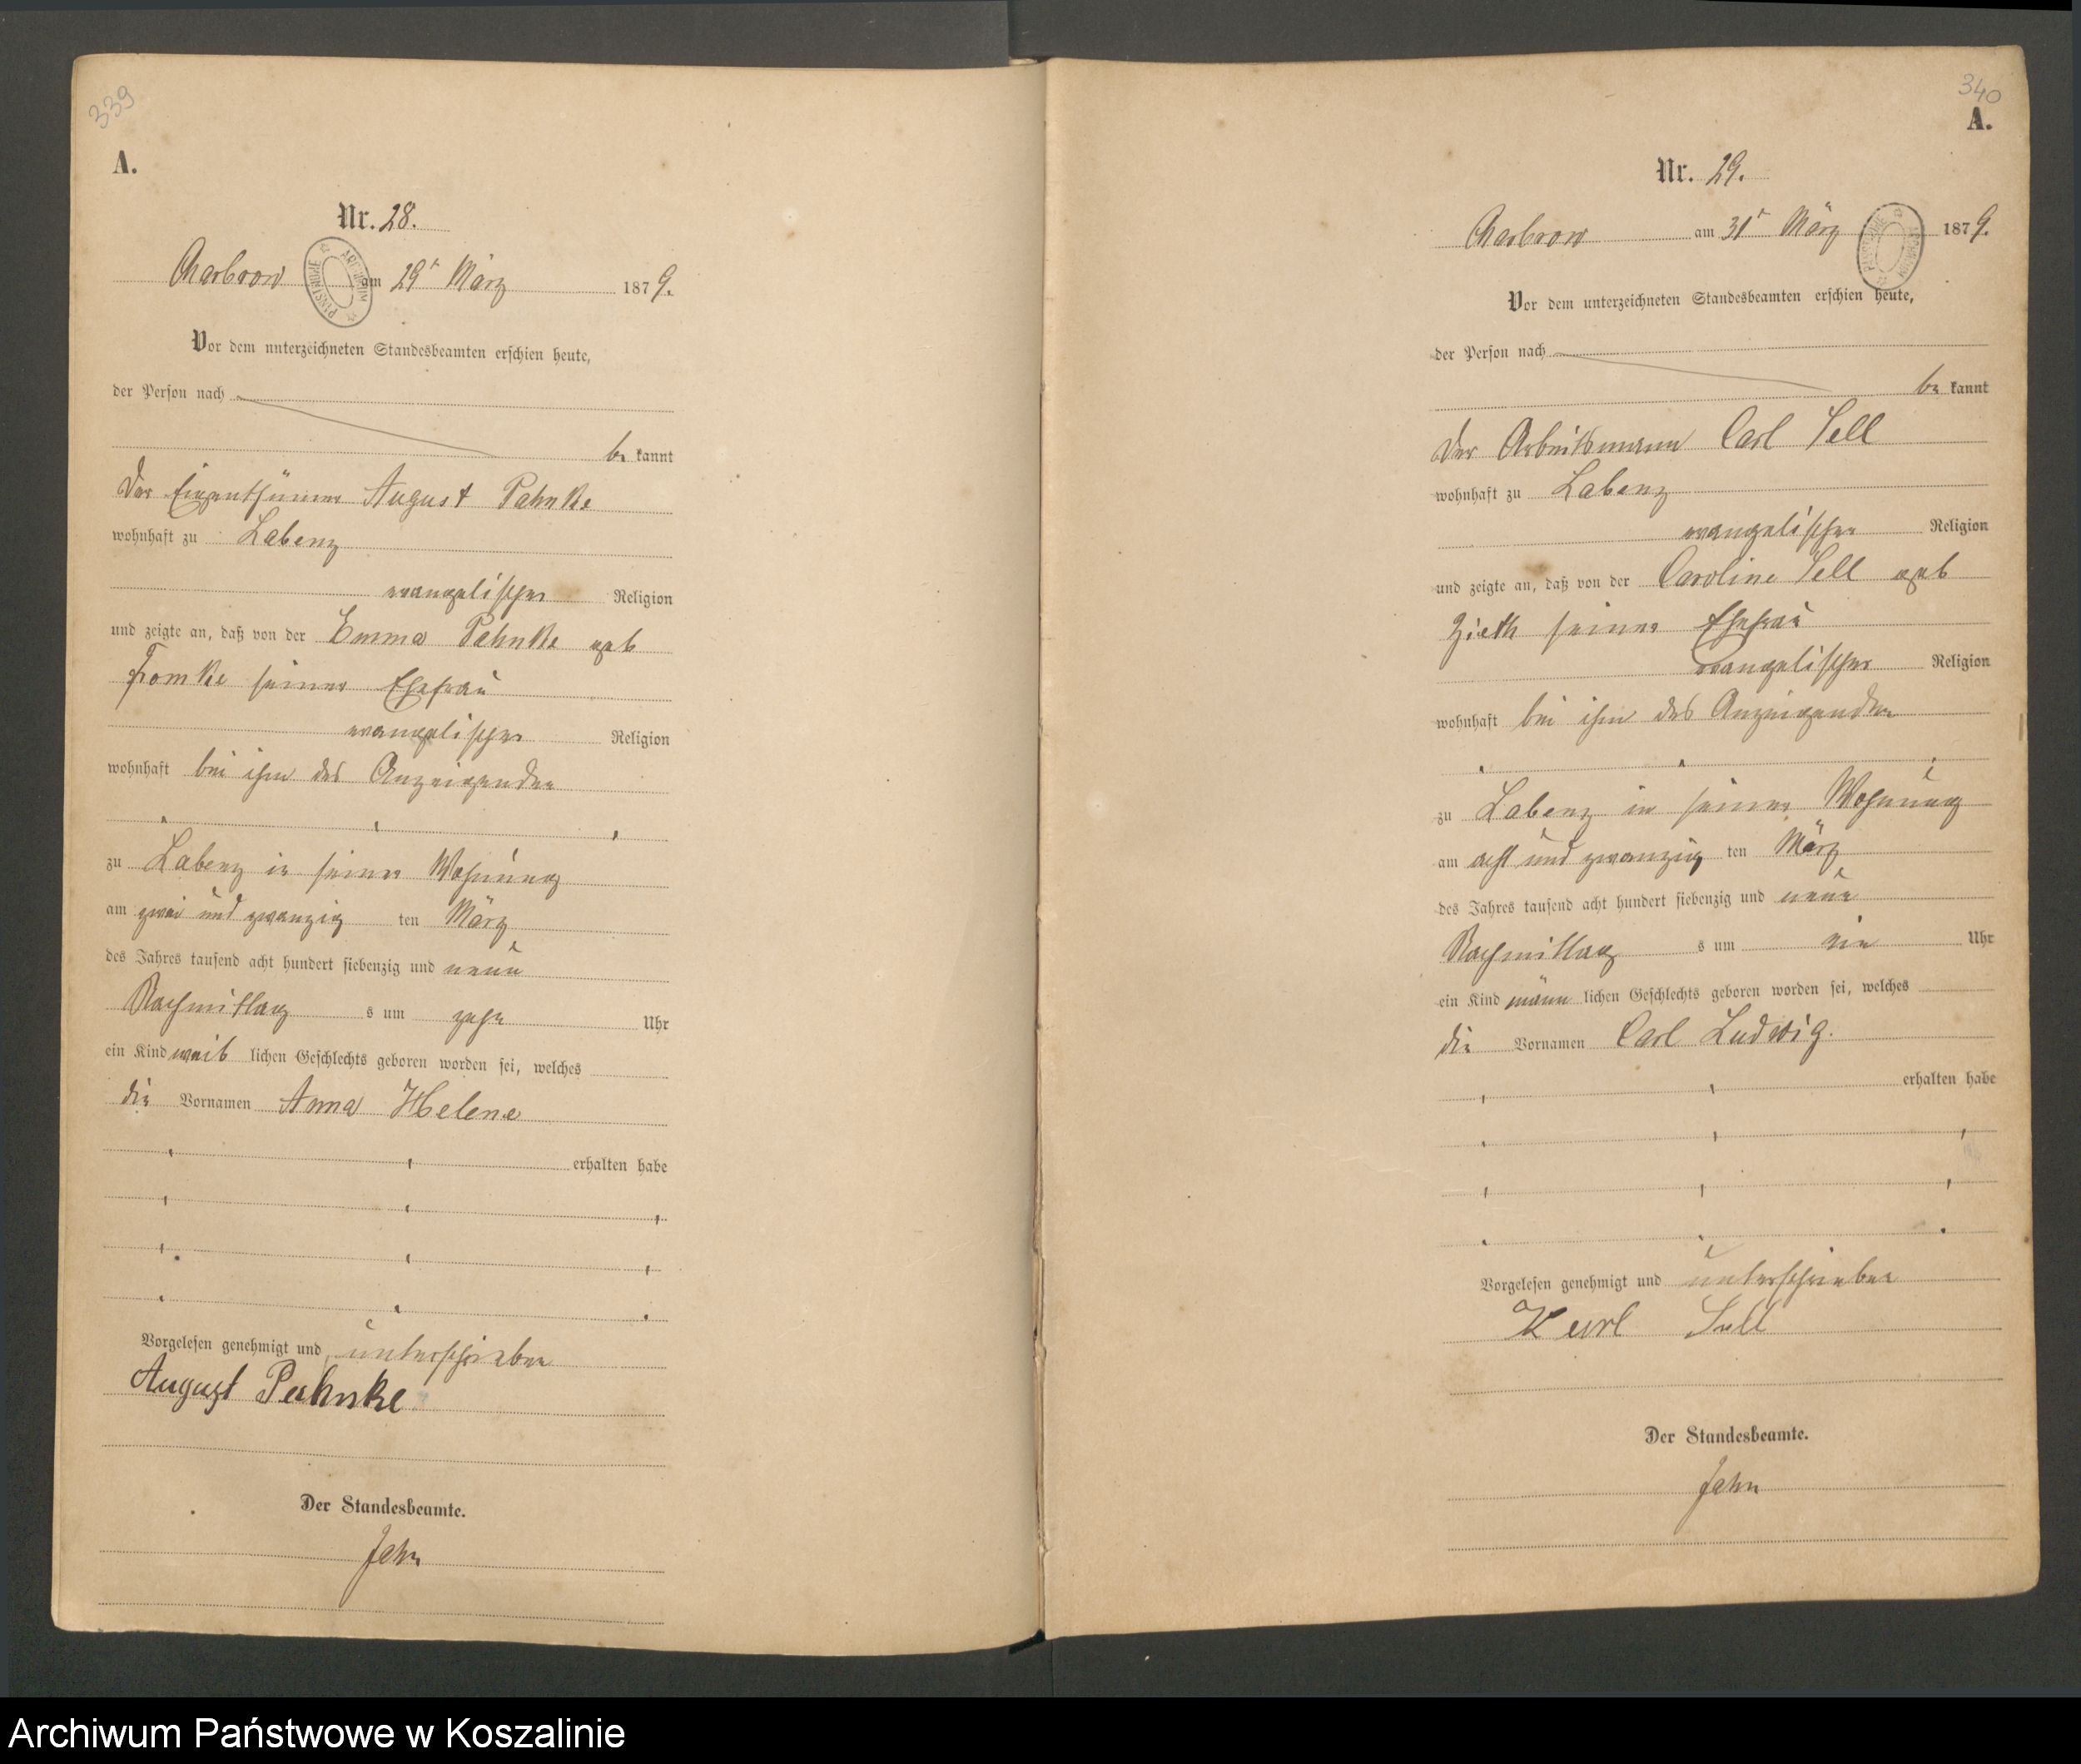 339
A.
Nr. 28.
Charbrow am 29t März 1879.
Vor dem unterzeichneten Standesbeamten erschien heute,
der Person nach
be kannt
Der Eigenthümer August Pahnke
wohnhaft zu Labenz
evangelischer Religion
und zeigte an, daß von der Emma Pahnke geb
Fromke seiner Ehefrau
evangelischer Religion
wohnhaft bei ihm des Anzeigenden
zu Labenz in seiner Wohnung
am zwei und zwanzig ten März
des Jahres tausend acht hundert siebenzig und neun
Nachmittag s um zehn Uhr
ein Kind weib lichen Geschlechts geboren worden sei, welches
die Vornamen Anna Helene
erhalten habe
Vorgelesen genehmigt und unterschrieben
August Pahnke
Der Standesbeamte.
Jahn
340
A.
Nr. 29.
Charbrow am 31t März 1879.
Vor dem unterzeichneten Standesbeamten erschien heute,
der Person nach
be kannt
Der Arbeitsmann Carl Sell
wohnhaft zu Labenz
evangelischer Religion
und zeigte an, daß von der Caroline Sell geb
Zieth seiner Ehefrau
evangelischer Religion
wohnhaft bei ihm des Anzeigenden
zu Labenz in seiner Wohnung
am acht und zwanzig ten März
des Jahres tausend acht hundert siebenzig und neun
Nachmittag s um ein Uhr
ein Kind männ lichen Geschlechts geboren worden sei, welches
die Vornamen Carl Ludwig.
erhalten habe
Vorgelesen genehmigt und unterschrieben
Karl Sell
Der Standesbeamte.
Jahn
Archiwum Państwowe w Koszalinie